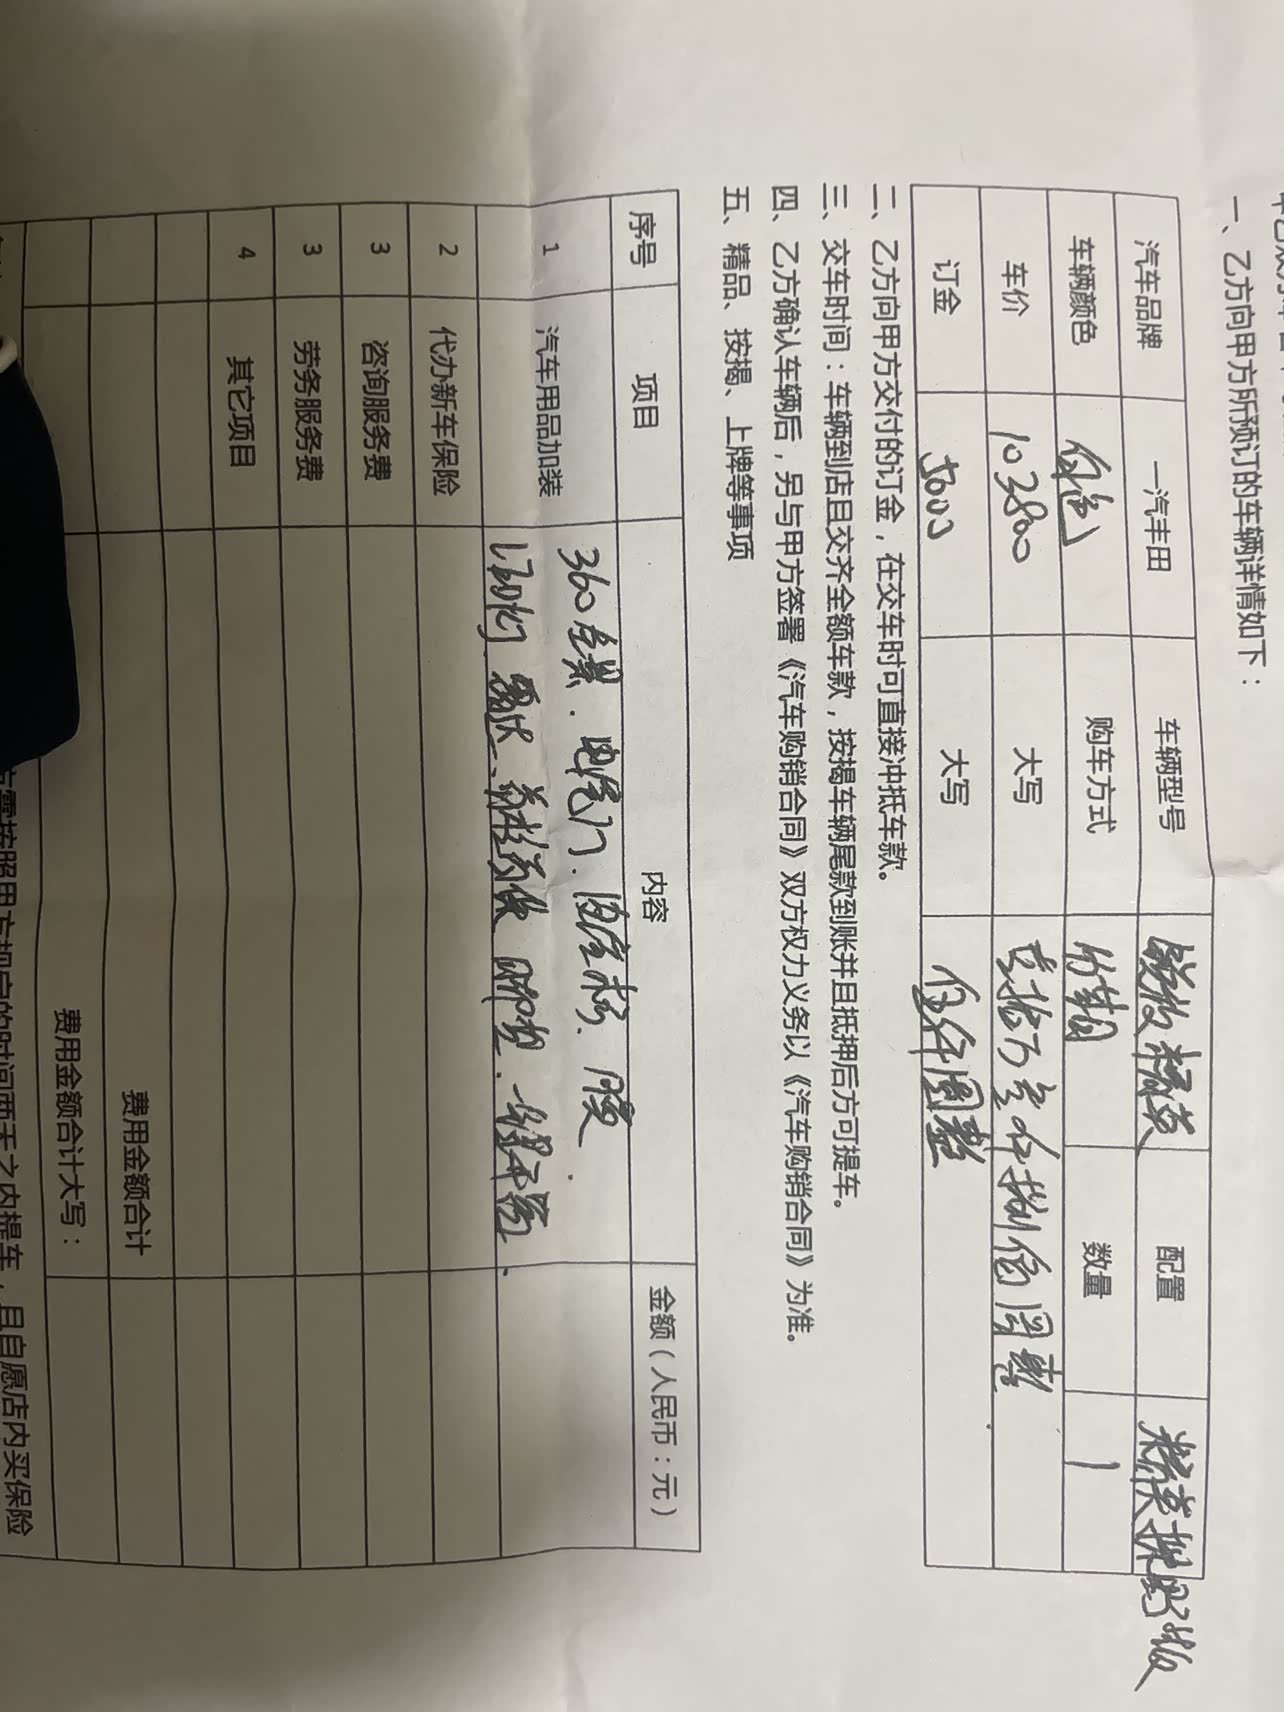 一、乙方向甲方所预订的车辆详情如下：
汽车品牌 一汽丰田 车辆型号 锐放 精英 配置 精英
车辆颜色 白色 购车方式 分期 数量 1
车价 103800 大写 壹拾万叁仟捌佰圆整
订金 5000 大写 伍仟圆整
二、乙方向甲方交付的订金，在交车时可直接冲抵车款。
三、交车时间：车辆到店且交齐全额车款，按揭车辆尾款到账并且抵押后方可提车。
四、乙方确认车辆后，另与甲方签署《汽车购销合同》双方权力义务以《汽车购销合同》为准。
五、精品、按揭、上牌等事项
序号 项目 内容 金额（人民币：元）
1 汽车用品加装 360全景．电尾门．
记录仪 脚垫．
2 代办新车保险
3 咨询服务费
3 劳务服务费
4 其它项目
费用金额合计
费用金额合计大写：
需按照甲方规定的时间两天之内提车，且自愿店内买保险